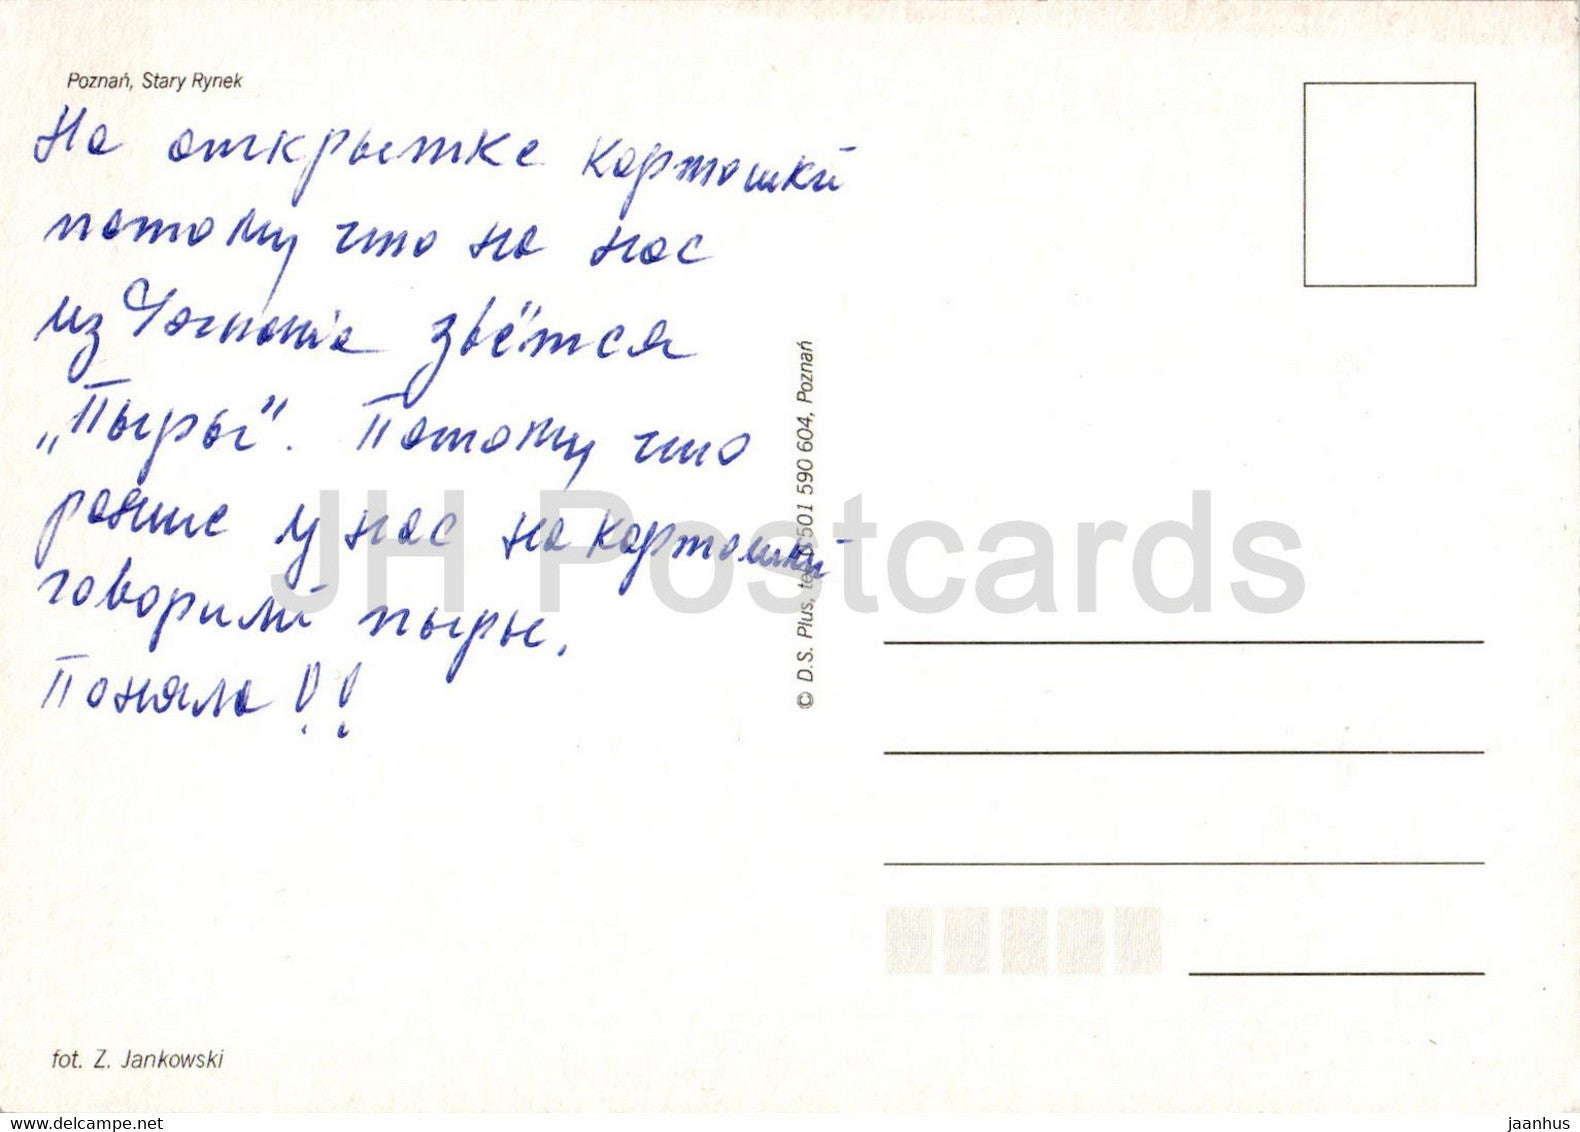 Poznań, Stary Rynek
На открытке картошки
потому что на нас
из зьётся
„Пыры". Потому что
раньше у нас на картошки
говорили пыры.
Поняла!!
© D.S. Plus, tel. 501 590 604, Poznań
JH Postcards
fot. Z. Jankowski
www.delcampe.net
jaanhus